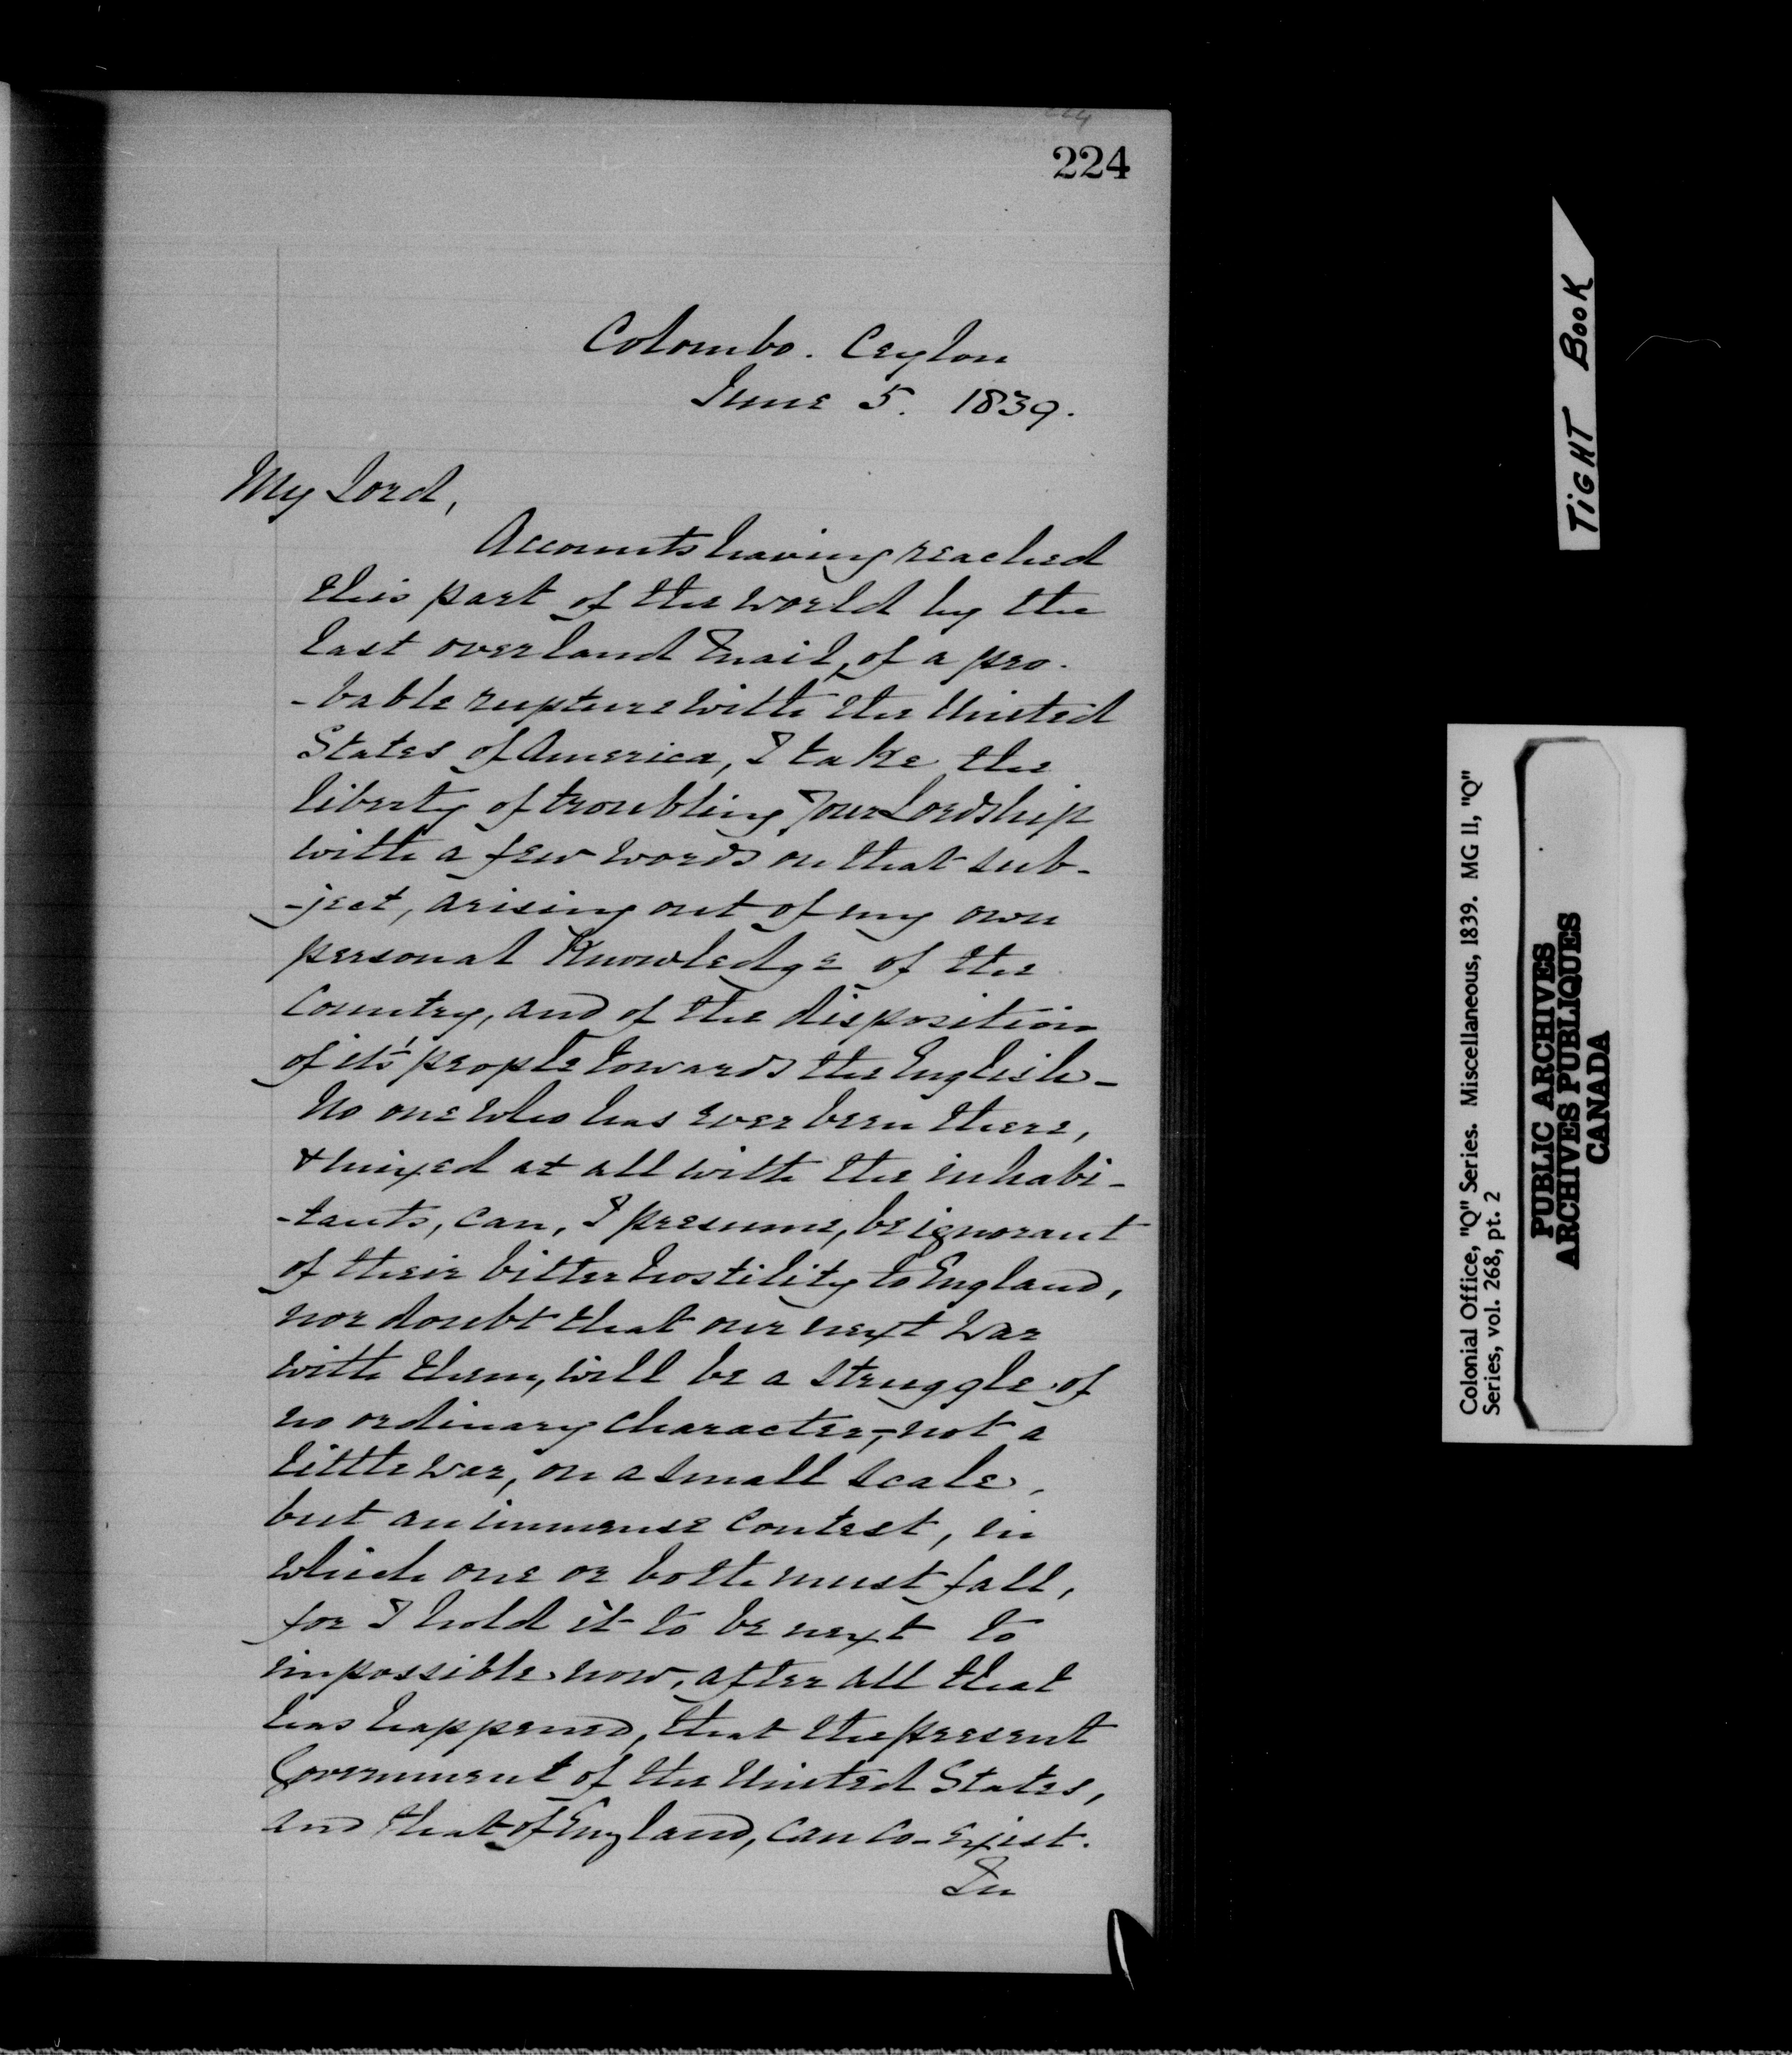 224
Colombo. Ceylon
June 5. 1839.
My Lord,
Accounts having reached
this part of the world by the
last overland Mail, of a pro-
-bable rupture with the United
States of America, I take the
liberty of troubling Your Lordship
with a few words on that sub-
-ject, arising out of my own
personal Knowledge of the
Country, and of the disposition
of it's people towards the English -
No one who has ever been there,
& mixed at all with the inhabi-
-tants, can, I presume, be ignorant
of their bitter hostility to England,
nor doubt that our next War
with them, will be a struggle of
no ordinary character, - not a
little war, on a small scale,
but an immense contest, in
which one or both must fall,
for I hold it to be next to
impossible now, after all that
has happened, that the present
Government of the United States,
and that of England, can co-exist.
In
TIGHT BOOK
Colonial Office, "Q" Series. Miscellaneous, 1839. MG 11, "Q"
Series, vol. 268, pt. 2
PUBLIC ARCHIVES
ARCHIVES PUBLIQUES
CANADA